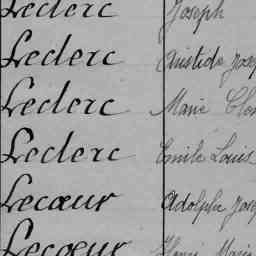 Leclerc Joseph
Leclerc Aristide
Leclerc Marie
Leclerc Emile Louis
Lecœur Adolphe
Lecœur Henri Marie